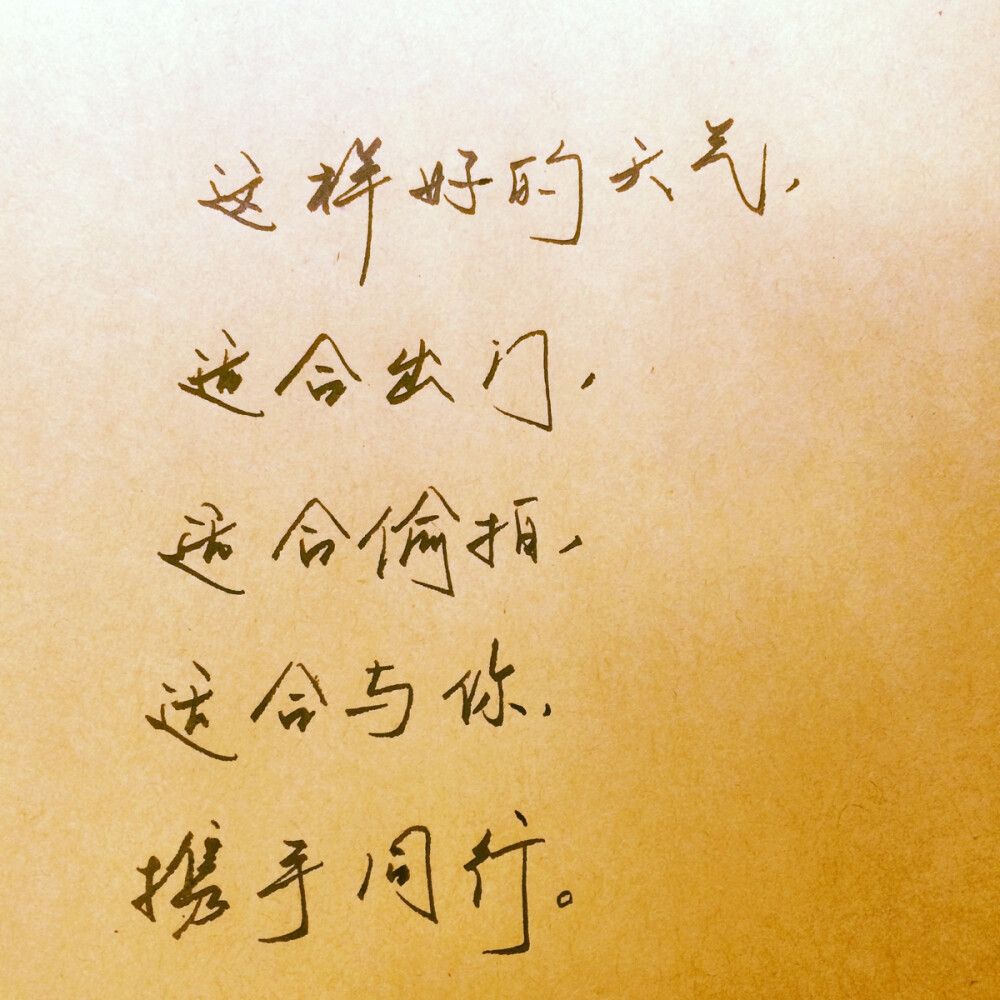 这样好的天气,
适合出门,
适合偷拍,
适合与你,
携手同行。